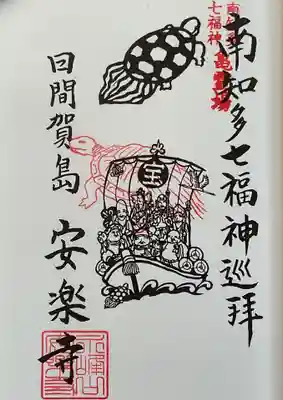 南知多七福神巡拝
南知多
七福神
亀霊場
宝
日間賀島
安楽寺